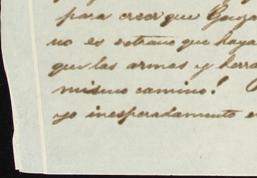 para creer que Gonza
no es estraño que haya
que las armas y herra
mismo camino!
yo inesperadamente e